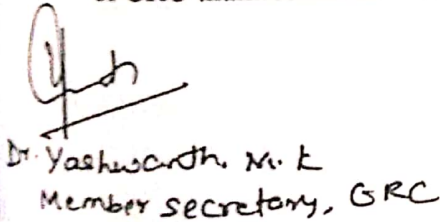 Dr. Yashwanth. M. K
Member secretary, GRC